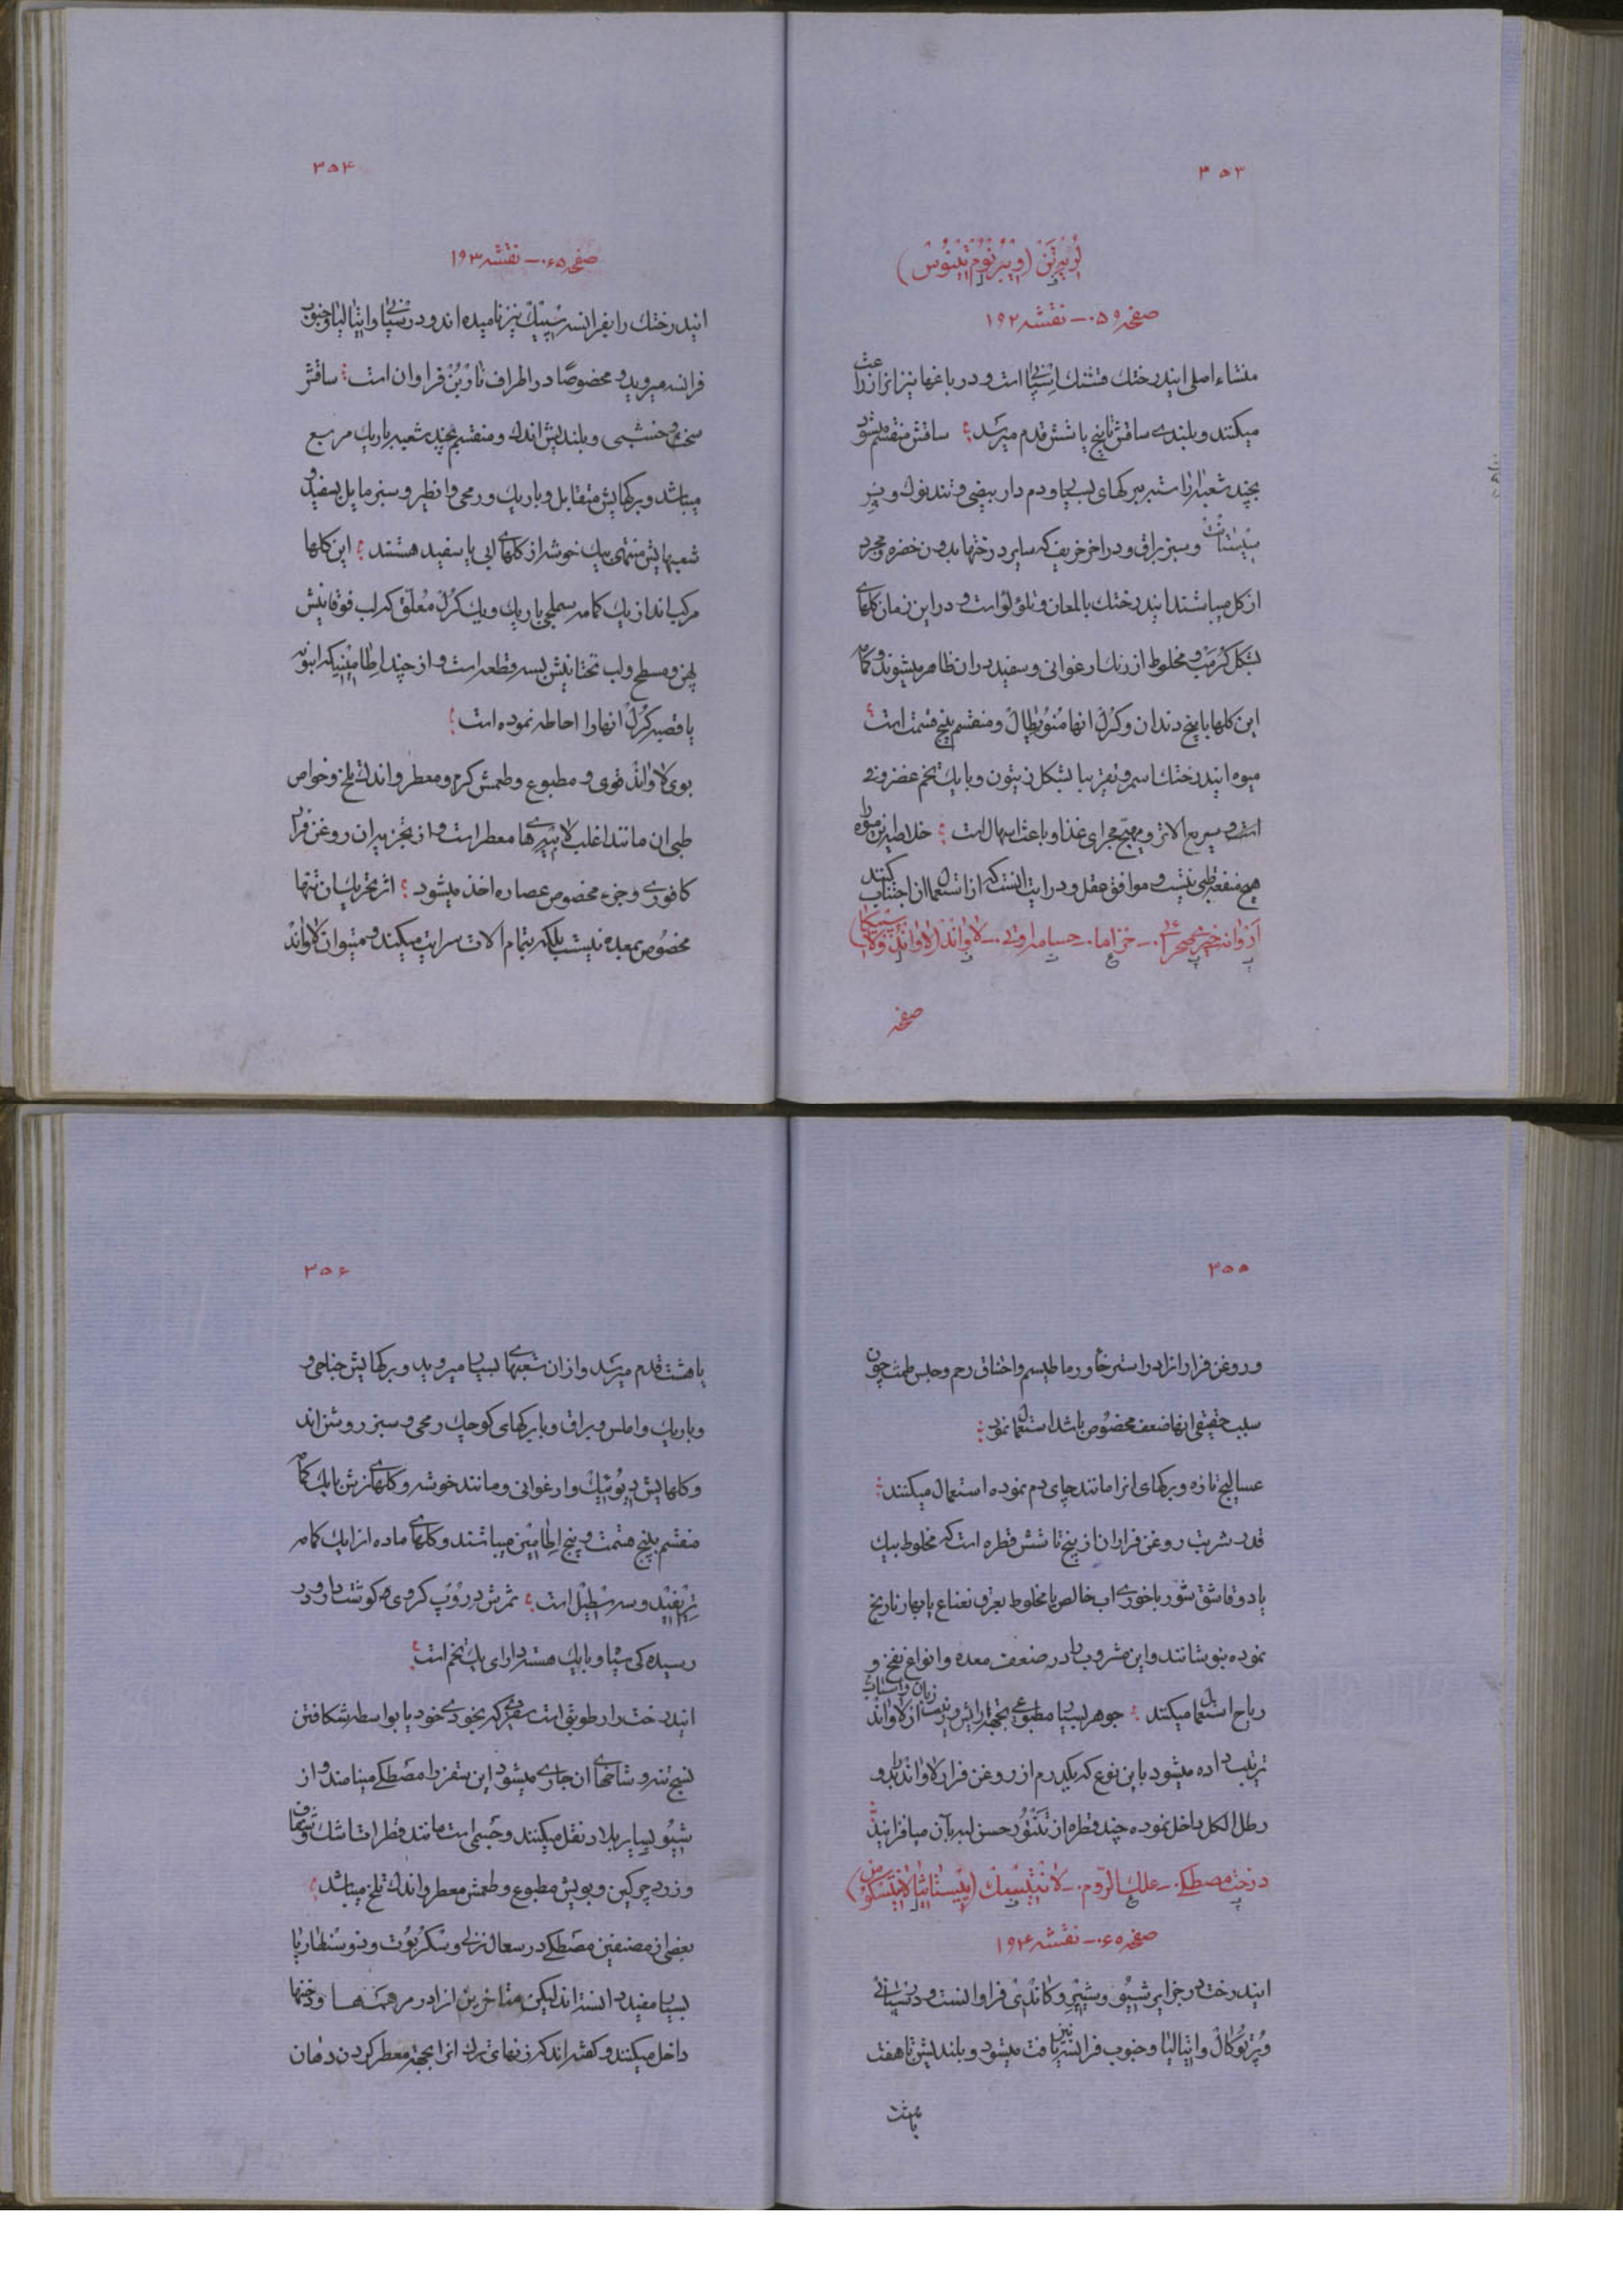 ۳۵۳
لُورِیِرتَن (وِیبُرنُوم تِینُوس)
صفحه ۵۹ـ نقشه ۱۹۲
منشاء اصلی ایندرختك است و در باغها نیز انرا زراعت
میکنند و بلندے ساقش تا پنج یا شش قدم میرسد؛ ساقش منقسم میشود
بچند شعبه برکهای بسیار دم دار بیضی و تند نوك و
و سبز براق و در اخر خریف که سایر درختها بدون خضره و مجرد
از کل میباشند ایندرختك بالمعان و تلؤلؤ است و در این زمان کلهای
بشکل و مخلوط از رنك ارغوانی و سفید دران ظاهر میشوند و کمامه
این کلها با پنج دندان و کرُل انها مُنُوپطال و منقسم پنج قسمت است
میوه ایندرختك اسمر و تقریبا بشکل زیتون و با یك تخم غضروفی
است و سریع الاثر و مهیّج مجرای غذا و باعث اسهال است؛ خلاصه این میوه را
هیچ منفعة طبی نیست و موافق عقل و درایت انست که از استعمال ان اجتناب کنند
خیری صحرائیـ خزاماـ ـ لاواند (لاواندُولا سپیکا)
صفحه
۳۵۴
صفحه ۶۵ـ نقشه ۱۹۳
ایندرختك را بفرانسه سپیك نیز نامیده اند و در اسپانیا و ایتالیا و جنوب
فرانسه میروید و مخصوصًا در اطراف نارْبُنْ فراوان است؛ ساقش
سخت و خشبی و بلندیش اندك و منقسم بچند شعبه باریك مربع
میباشد و برکهایش متقابل و باریك و رمحی و انظیر و سبز مایل بسفیدی و
شعبهایش منتهی بیك خوشه از کلهای ابی یا سفید هستند؛ این کلها
مرکب اند از یك کمامه سملجی باریك و یك کرُل مُعلّق که لب فوقانیش
پهن و مسطح و لب تحتانیش بسه قطعه است و از چند اطامین که انبوبه
یا قصبه کرُل انهارا احاطه نموده است؛
بوی لاواند قوی و مطبوع و طعمش کرم و معطر و اندك تلخ و خواص
طبی ان مانند اغلب لابیه ها معطر است و از تجزیه ان روغن فرار
کافورے و جزء مخصوص عصاره اخذ میشود؛ اثر تحریك ان تنها
مخصُوص بمعده نیست بلکه بتمام الات سرایت میکند و میتوان لاواند
۳۵۵
و روغن فرار انرا در استرخا و رماطیسم و اختناق رحم و حبس طمث چون
سبب حقیقی انها ضعف مخصُوص باشد استعمال نمود؛
عسالیج تازه و برکهای انرا مانند چای دم نموده استعمال میکنند؛
قدر شربت روغن فرار ان از پنج تا شش قطره است که مخلوط بیك
یا دو قاشق شورباخورے اب خالص یا مخلوط بعرق نعناع یا بهار نارنج
نموده بنوشانند و این مشروب را در ضعف معده و انواع نفخ و
ریاح استعمال میکنند؛ جوهر بسیار مطبوعے بجهة ارایش و زینت زنان و از لاواند
ترتیب داده میشود باین نوع که یکدرم از روغن فرار لاواند را بدو
رطل الکل داخل نموده چند قطره از تَنتُور حسن لبه بآن میافزایند؛
درخت مصطکےـ علك الرّومـ لانتیسك (پیستاشیا لانتیسکوس)
صفحه ۶۵ـ نقشه ۱۹۴
ایندرخت در جزایر شیُو و شیپر و کاندی فراوانست و در اسپانی
و پُرتُوکال و ایتالیا و جنوب فرانسه نیز یافت میشود و بلندیش تا هفت
یا هشت
۳۵۶
یا هشت قدم میرسد و از ان شعبهاے بسیار میروید و برکهایش جناحی و
و باریك و املس و براق و با برکهای کوچك رمحی و سبز روشن اند
و کلهایش دیُوئیك و ارغوانی و مانند خوشه و کلهای نرش با یك کمامه
منقسم پنج قسمت و پنج اطامین میباشند و کلهای ماده از یك کمامه
تریفید و سه سطیل است؛ ثمرش دروپ کروی کم کوشت دارد و در
رسیده کی سیاه و با یك هسته دارای یك تخم است؛
ایندرخت را رطوبتی است سقزے که بخودی خود یا بواسطه شکافتن
نسج تنه و شاخهای ان جارے میشود این سقز را مصطکے مینامند و از
شیُو بسایر بلاد نقل میکنند و جسمی است مانند قطرات اشك و شفاف
و زرد چرکین و بویش مطبوع و طعمش معطر و اندك تلخ میباشد؛
بعضی از مصنفین مصطکے در سعال نزلی و سکُربُوت و دوسنطاریا
بسیار مفید دانسته اند لیکن متاخرین انرا در مرهمها و دخنها
داخل میکنند و کفته اند که زنهای ترك انرا بجهة معطر کردن دهان